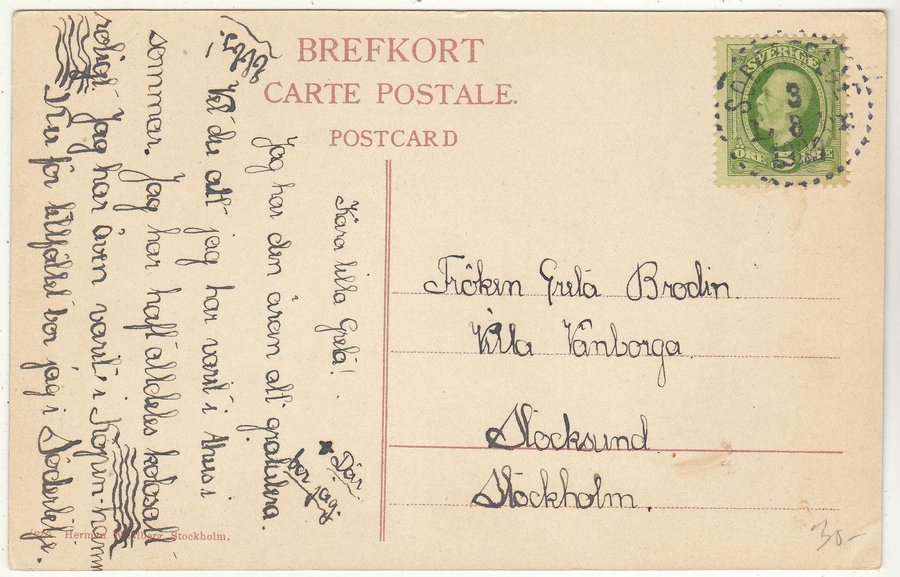 BREFKORT
CARTE POSTALE.
POSTCARD
Kära lilla Greta!
Jag har den äran att gratulera.
Vet du att jag har varit i
sommar. Jag har haft alldeles kolosalt
roligt. Jag har även varit i Köpen-hamn
Nu för tillfället bor jag i Södertelje.
Där
bor jag.
SVERIGE
ÖRE 5
3
8
Fröken Greta Brodin.
Villa Vänborga
Stocksund
Stockholm.
Herman Stockholm.
30-